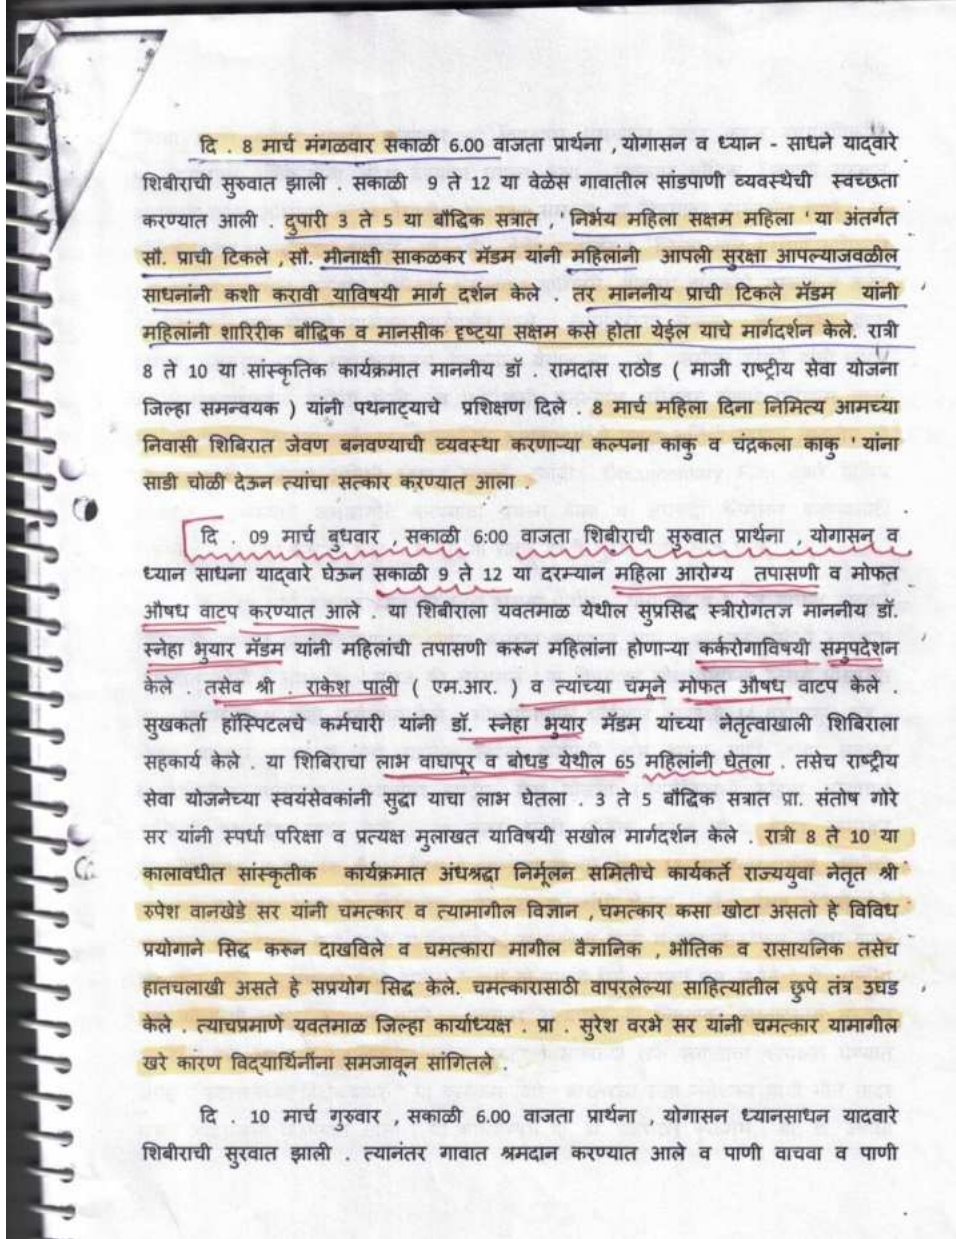 दि . 8 मार्च मंगळवार सकाळी 6.00 वाजता प्रार्थना , योगासन व ध्यान - साधने याद्वारे
शिबीराची सुरुवात झाली . सकाळी 9 ते 12 या वेळेस गावातील सांडपाणी व्यवस्थेची स्वच्छता
करण्यात आली . दुपारी 3 ते 5 या बौद्धिक सत्रात , ' निर्भय महिला सक्षम महिला ' या अंतर्गत
सौ. प्राची टिकले , सौ. मीनाक्षी साकळकर मॅडम यांनी महिलांनी आपली सुरक्षा आपल्याजवळील
साधनांनी कशी करावी याविषयी मार्ग दर्शन केले . तर माननीय प्राची टिकले मॅडम यांनी
महिलांनी शारिरीक बौद्धिक व मानसीक दृष्टया सक्षम कसे होता येईल याचे मार्गदर्शन केले. रात्री
8 ते 10 या सांस्कृतिक कार्यक्रमात माननीय डॉ . रामदास राठोड ( माजी राष्ट्रीय सेवा योजना
जिल्हा समन्वयक ) यांनी पथनाट्याचे प्रशिक्षण दिले . 8 मार्च महिला दिना निमित्य आमच्या
निवासी शिबिरात जेवण बनवण्याची व्यवस्था करणाऱ्या कल्पना काकु व चंद्रकला काकु ' यांना
साडी चोळी देऊन त्यांचा सत्कार करण्यात आला .
दि . 09 मार्च बुधवार , सकाळी 6:00 वाजता शिबीराची सुरुवात प्रार्थना , योगासन व
ध्यान साधना याद्वारे घेऊन सकाळी 9 ते 12 या दरम्यान महिला आरोग्य तपासणी व मोफत
औषध वाटप करण्यात आले . या शिबीराला यवतमाळ येथील सुप्रसिद्ध स्त्रीरोगतज्ञ माननीय डॉ.
स्नेहा भुयार मॅडम यांनी महिलांची तपासणी करून महिलांना होणाऱ्या कर्करोगाविषयी समुपदेशन
केले . तसेव श्री . राकेश पाली ( एम.आर. ) व त्यांच्या चमूने मोफत औषध वाटप केले .
सुखकर्ता हॉस्पिटलचे कर्मचारी यांनी डॉ. स्नेहा भुयार मॅडम यांच्या नेतृत्वाखाली शिबिराला
सहकार्य केले . या शिबिराचा लाभ वाघापूर व बोधड येथील 65 महिलांनी घेतला . तसेच राष्ट्रीय
सेवा योजनेच्या स्वयंसेवकांनी सुद्धा याचा लाभ घेतला . 3 ते 5 बौद्धिक सत्रात प्रा. संतोष गोरे
सर यांनी स्पर्धा परिक्षा व प्रत्यक्ष मुलाखत याविषयी सखोल मार्गदर्शन केले . रात्री 8 ते 10 या
कालावधीत सांस्कृतीक कार्यक्रमात अंधश्रद्धा निर्मूलन समितीचे कार्यकर्ते राज्ययुवा नेतृत श्री
रुपेश वानखेडे सर यांनी चमत्कार व त्यामागील विज्ञान , चमत्कार कसा खोटा असतो हे विविध
प्रयोगाने सिद्ध करून दाखविले व चमत्कारा मागील वैज्ञानिक , भौतिक व रासायनिक तसेच
हातचलाखी असते हे सप्रयोग सिद्ध केले. चमत्कारासाठी वापरलेल्या साहित्यातील छुपे तंत्र उघड
केले . त्याचप्रमाणे यवतमाळ जिल्हा कार्याध्यक्ष . प्रा . सुरेश वरभे सर यांनी चमत्कार यामागील
खरे कारण विद्यार्थिनींना समजावून सांगितले .
दि . 10 मार्च गुरुवार , सकाळी 6.00 वाजता प्रार्थना , योगासन ध्यानसाधन याद्वारे
शिबीराची सुरवात झाली . त्यानंतर गावात श्रमदान करण्यात आले व पाणी वाचवा व पाणी